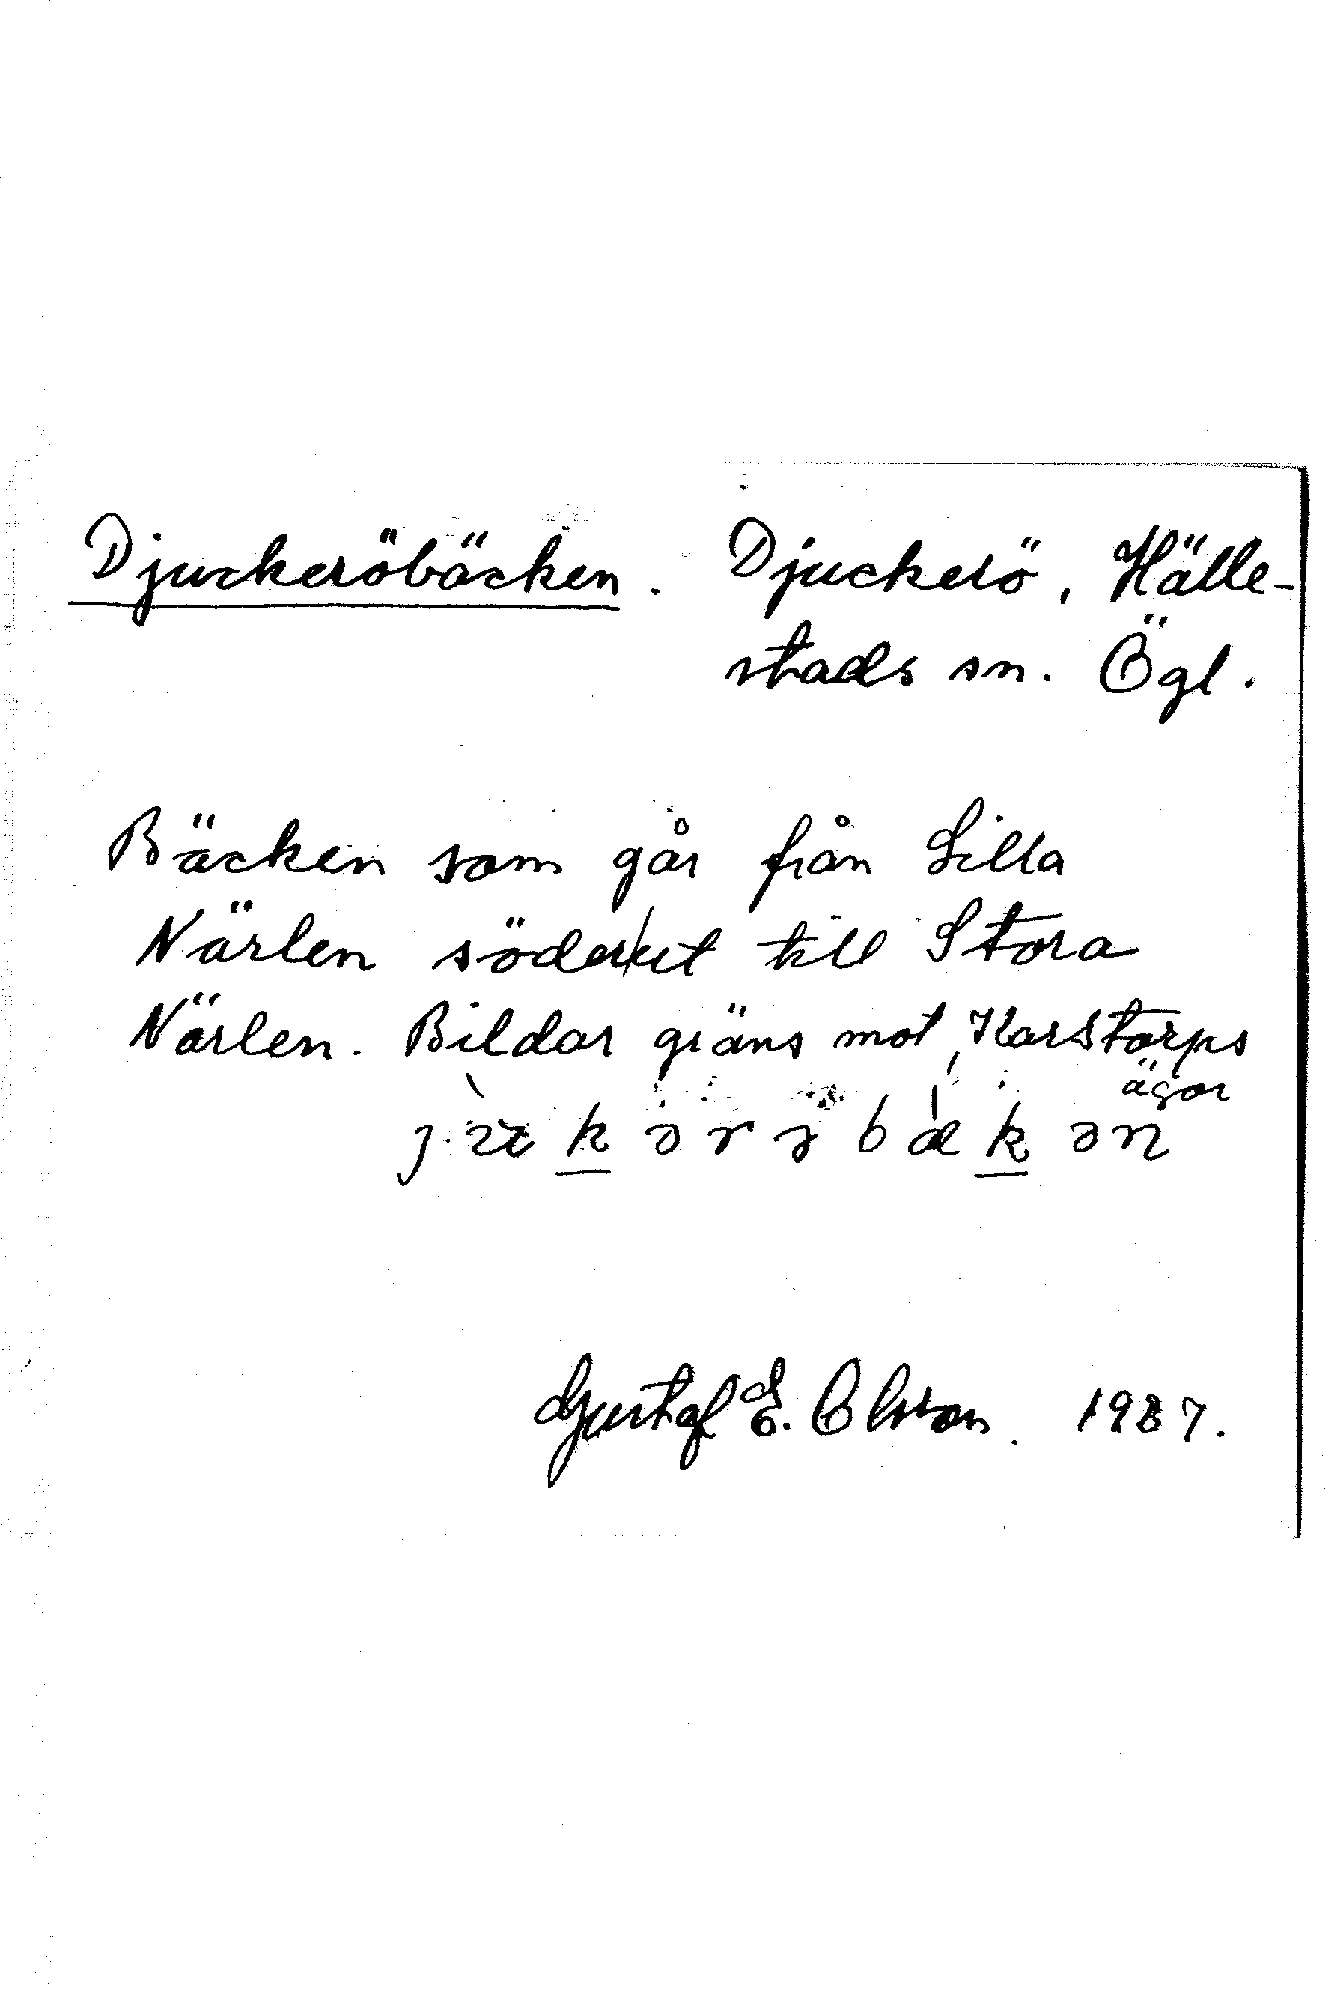 Djuckeröbäcken. Djuckerö, Hälle-
stads sn. Ögl.
Bäcken som går från Lilla
Närlen söderut till Stora
Närlen. Bildar gräns mot Karstorps
ägor
Gustaf E. Olsson. 1987.